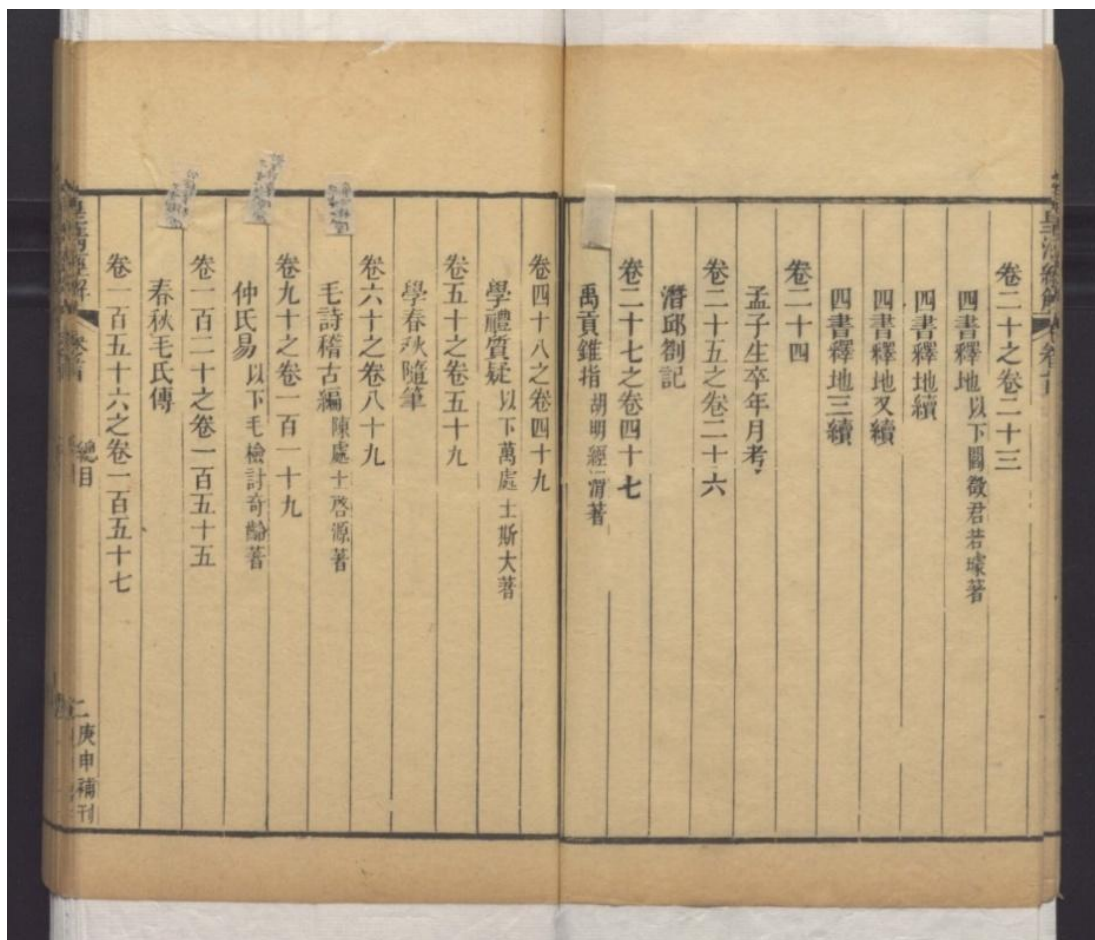 皇清經解 卷首
卷二十之卷二十三
四書釋地 以下閻徵君若璩著
四書釋地續
四書釋地又續
四書釋地三續
卷二十四
孟子生卒年月考
卷二十五之卷二十六
潛邱劄記
卷二十七之卷四十七
禹貢錐指 胡明經渭著
卷四十八之卷四十九
學禮質疑 以下萬處士斯大著
卷五十之卷五十九
學春秋隨筆
卷六十之卷八十九
毛詩稽古編 陳處士啓源著
卷九十之卷一百一十九
仲氏易 以下毛檢討奇齡著
卷一百二十之卷一百五十五
春秋毛氏傳
卷一百五十六之卷一百五十七
皇清經解 卷首 總目 二 庚申補刊